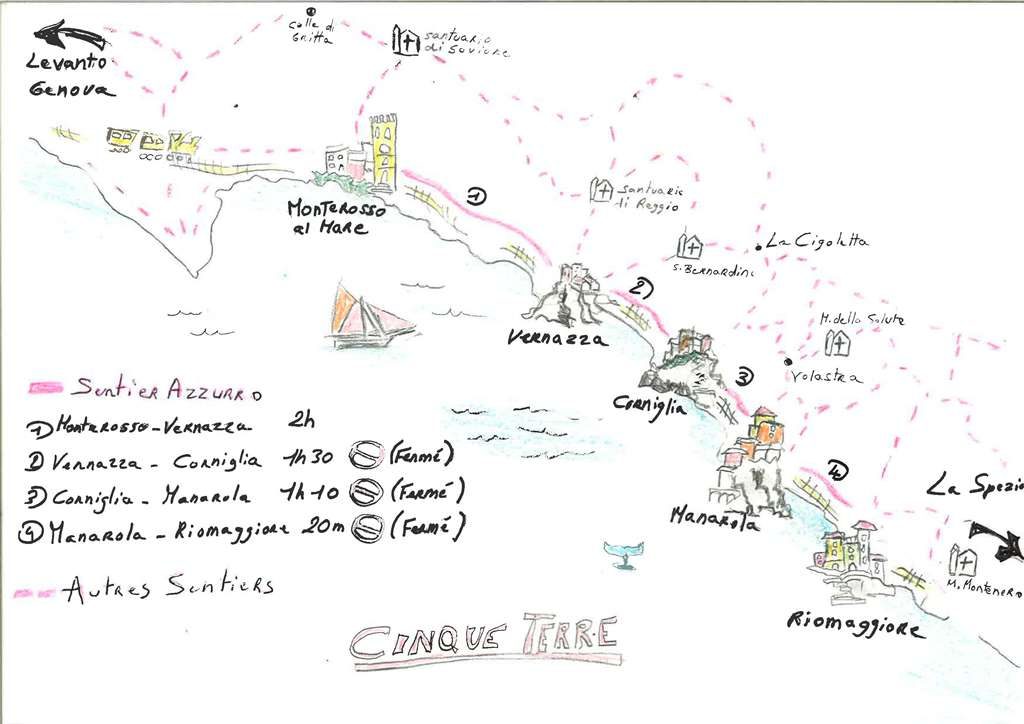 Colle di
Gritta
Santuario
di Soviore
Levanto
Genova
Monterosso
al Mare
1
Santuario
di Reggio
La Cigoletta
S. Bernardino
2
Vernazza
M. della Salute
Volastra
3
Corniglia
Sentier Azzurro
1 Monterosso - Vernazza 2h
2 Vernazza - Corniglia 1h30 (Fermé)
3 Corniglia - Manarola 1h10 (Fermé)
4 Manarola - Riomaggiore 20m (Fermé)
Autres Sentiers
4
Manarola
La Spezia
M. Montenero
Riomaggiore
Cinque Terre